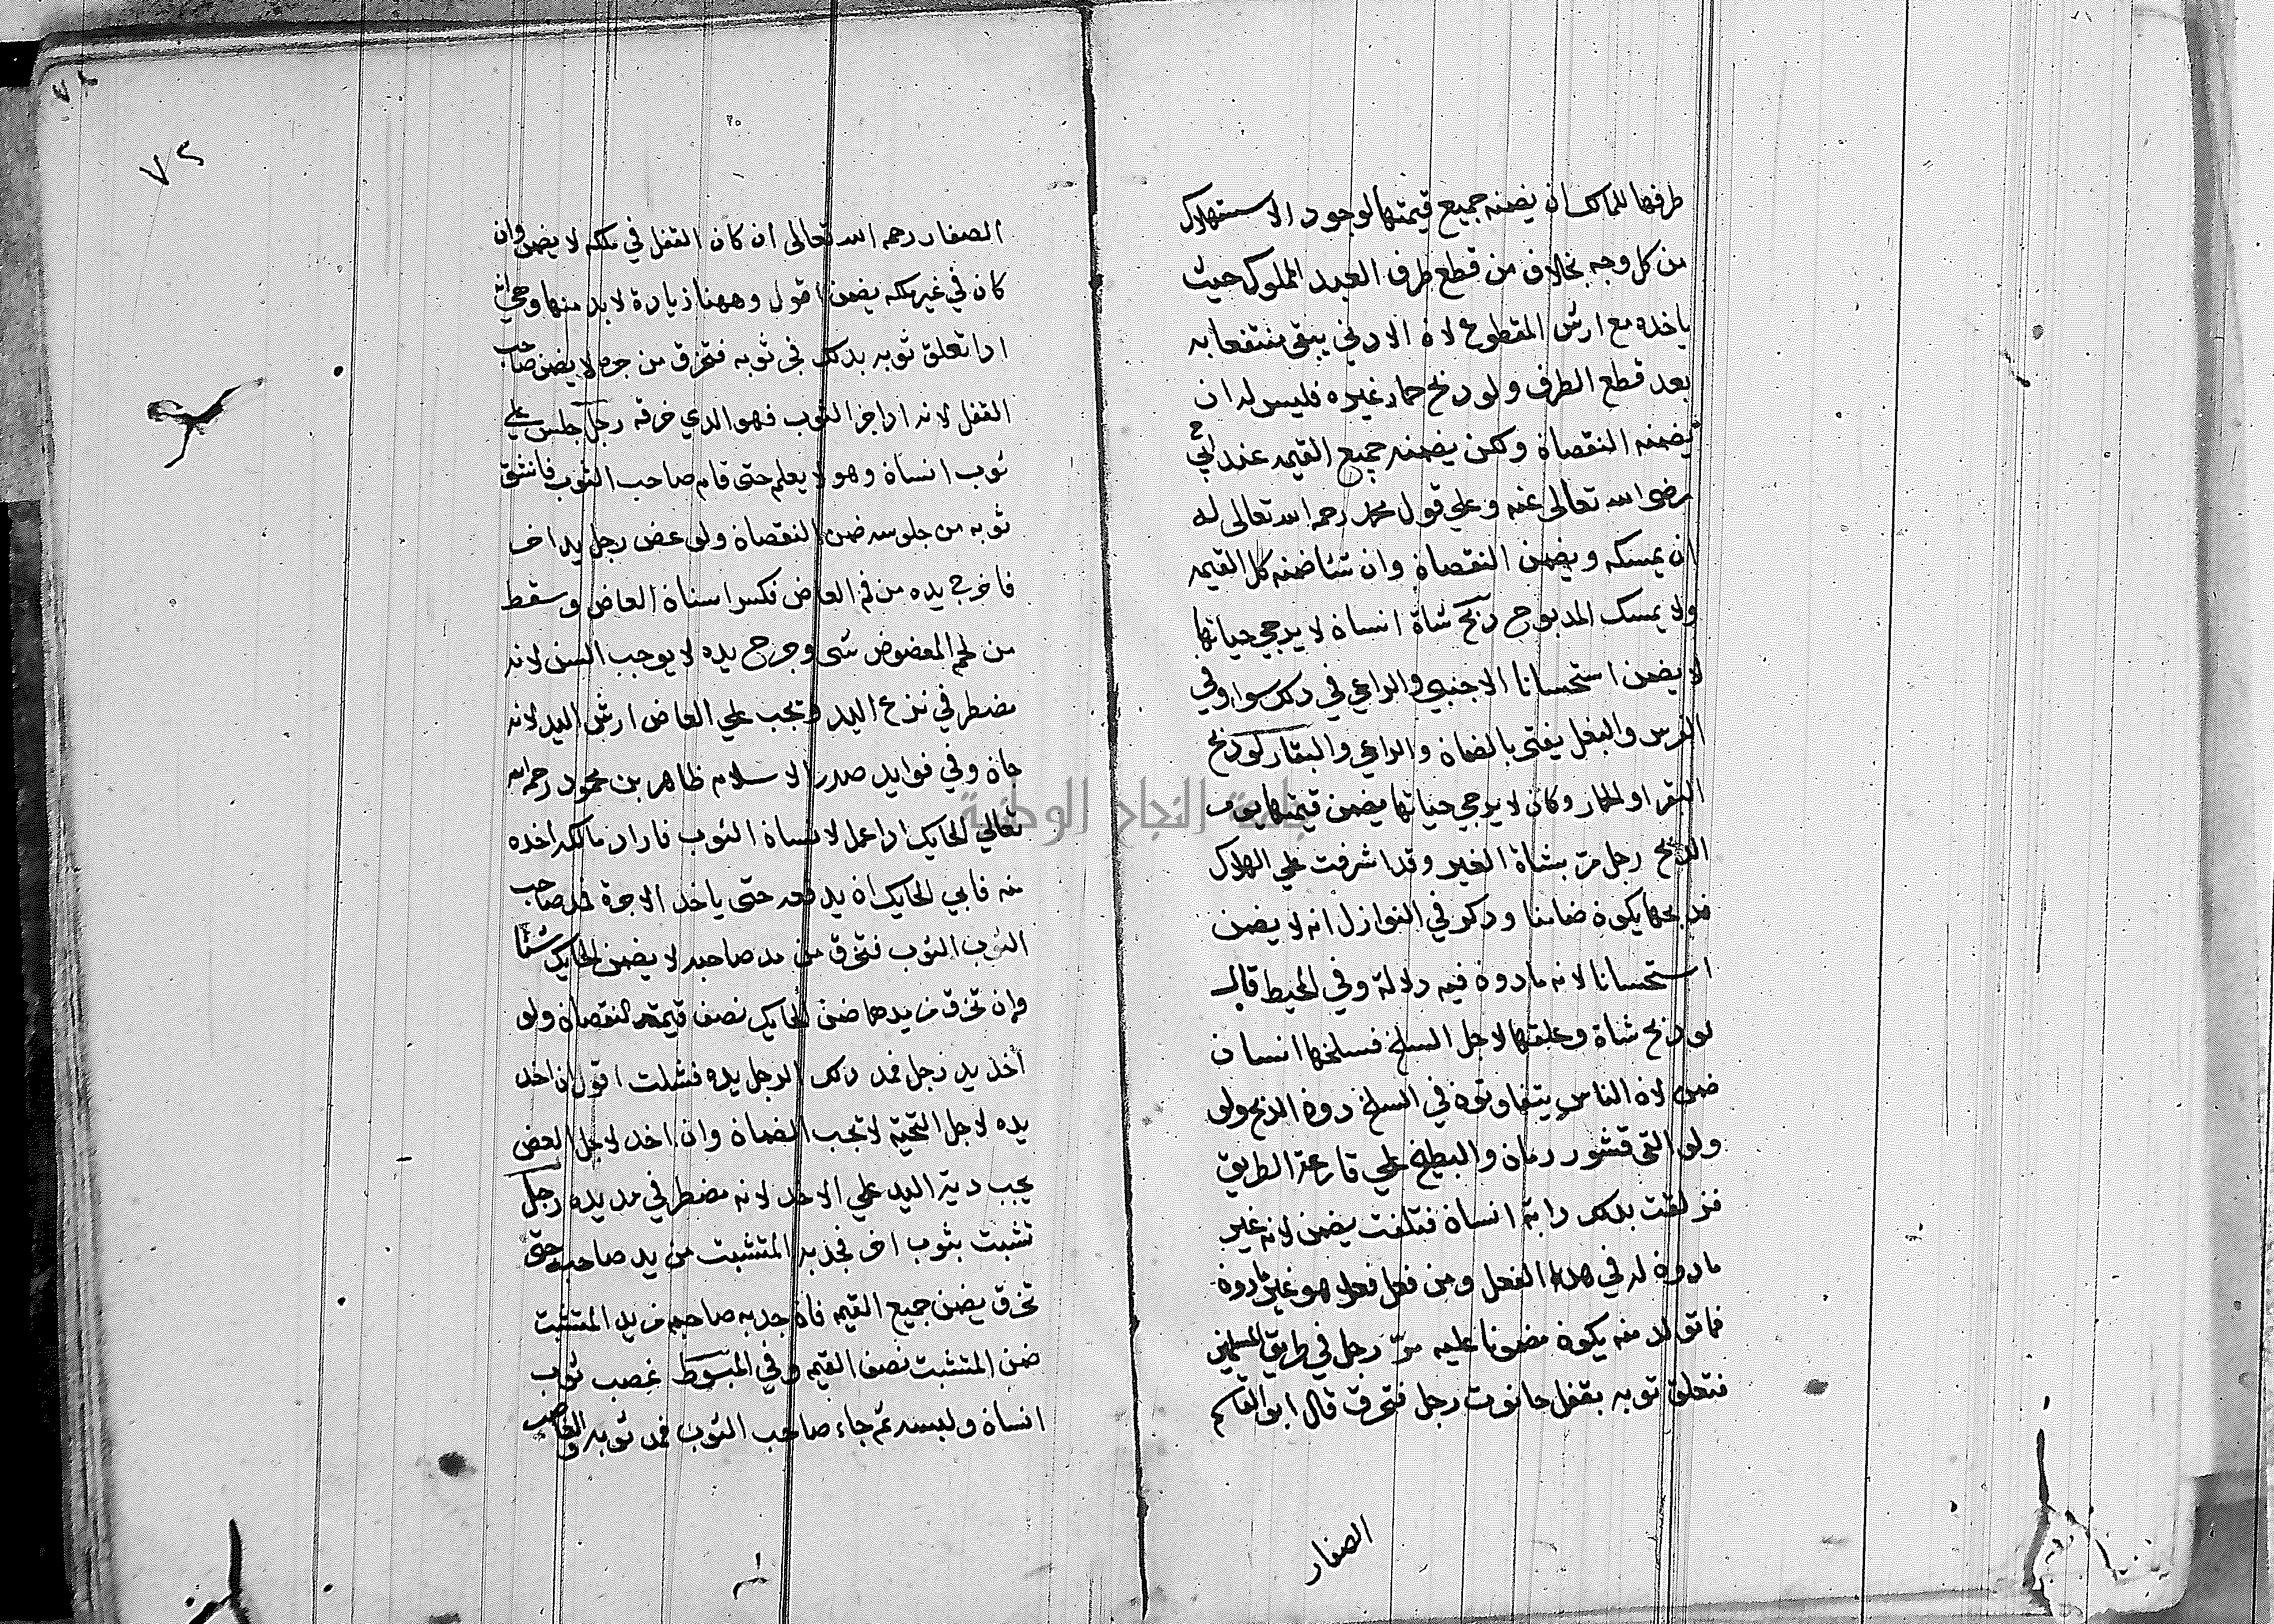 طرفها للمالك ان يضمنه جميع قيمتها لوجود الاستهلاك
من كل وجه بخلاف من قطع طرف العبد المملوك حيث
ياخذه مع ارش المقطوع لان الادني يبقي منتفعا به
بعد قطع الطرف ولو ذبح حمار غيره فليس له ان
يضمنه النقصان ولكن يضمنه جميع القيمه عند ابي ح
رضى الله تعالى عنه وعلي قول محمد رحمه الله تعالى له
ان يمسكه ويضمن النقصان وان شا ضمنه كل القيمه
ولا يمسك المذبوح ذبح شاة انسان لا يرجي حياتها
لا يضمن استحسانا الاجنبي والراعي في ذلك سوا وفي
الفرس والبغل يفتى بالضمان والراعي والبقار لو ذبح
البقر او الحمار وكان لا يرجي حياتها يضمن قيمتها يوم
الذبح رجل مرّ بشاة الغير وقد اشرفت علي الهلاك
فذبحها يكون ضامنا وذكر في النوازل انه لا يضمن
استحسانا لانه ماذون فيه دلالة وفي المحيط قال
لو ذبح شاة وعلقها لاجل السلخ فسلخها انسان
ضمن لان الناس يتفاوتون في السلخ دون الذبح ولو
ولو القى قشور رمان والبطيخ علي قارعة الطريق
فزلقت بذلك دابة انسان فتلفت يضمن لانه غير
ماذون له في هذا الفعل ومن فعل فعلا هو غير ماذون
فما تولد منه يكون مضمونا عليه مرّ رجل في طريق المسلمين
فتعلق ثوبه بقفل حانوت رجل فتخرق قال ابو القاسم
الصفار
٧٢
٧٢
الصفار رحمه الله تعالى ان كان القفل في ملكه لا يضمن وان
كان في غير ملكه يضمن اقول وههنا زيادة لا بد منها وهي انه
اذا تعلق ثوبه بذلك فجر ثوبه فتخرق من جره لا يضمن صاحب
القفل لانه اذا جر الثوب فهو الذي خرقه رجل جلس علي
ثوب انسان وهو لا يعلم حتى قام صاحب الثوب فانشق
ثوبه من جلوسه ضمن النقصان ولو عض رجل يد اخر
فاخرج يده من فم العاض فكسر اسنان العاض وسقط
من لحم المعضوض شى وجرح يده لا يوجب السن لانه
مضطر في نزع اليد وتجب علي العاض ارش اليد لانه
جان وفي فوايد صدر الاسلام طاهر بن محمود رحمه الله
تعالي الحايك اذا عمل لانسان الثوب فاراد مالكه اخذه
منه فابي الحايك ان يدفعه حتى ياخذ الاجرة فمد صاحب
الثوب الثوب فتخرق من مد صاحبه لا يضمن الحايك شيا
وان تخرق من يدهما ضمن الحايك نصف قيمة النقصان ولو
اخذ يد رجل فمد ذلك الرجل يده فشلت اقول ان اخذ
يده لاجل التحية لا تجب الضمان وان اخذ لاجل العض
يجب دية اليد علي الاخذ لانه مضطر في مد يده رجل
تشبت بثوب اخر فجذبه المتشبت من يد صاحبه حتى
تخرق يضمن جميع القيمه فان جذبه صاحبه من يد المتشبت
ضمن المتشبت نصف القيمه وفي المبسوط غصب ثوب
انسان ولبسه ثم جاء صاحب الثوب فمد ثوبه والغاصب
جامعة النجاح الوطنية